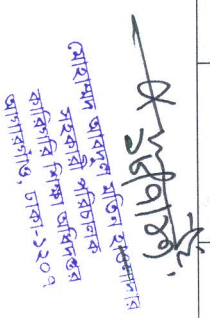 মোহাম্মদ আবদুল মতিন হাওলাদার
সহকারী পরিচালক
কারিগরি শিক্ষা অধিদপ্তর
আগারগাঁও, ঢাকা-১২০৭